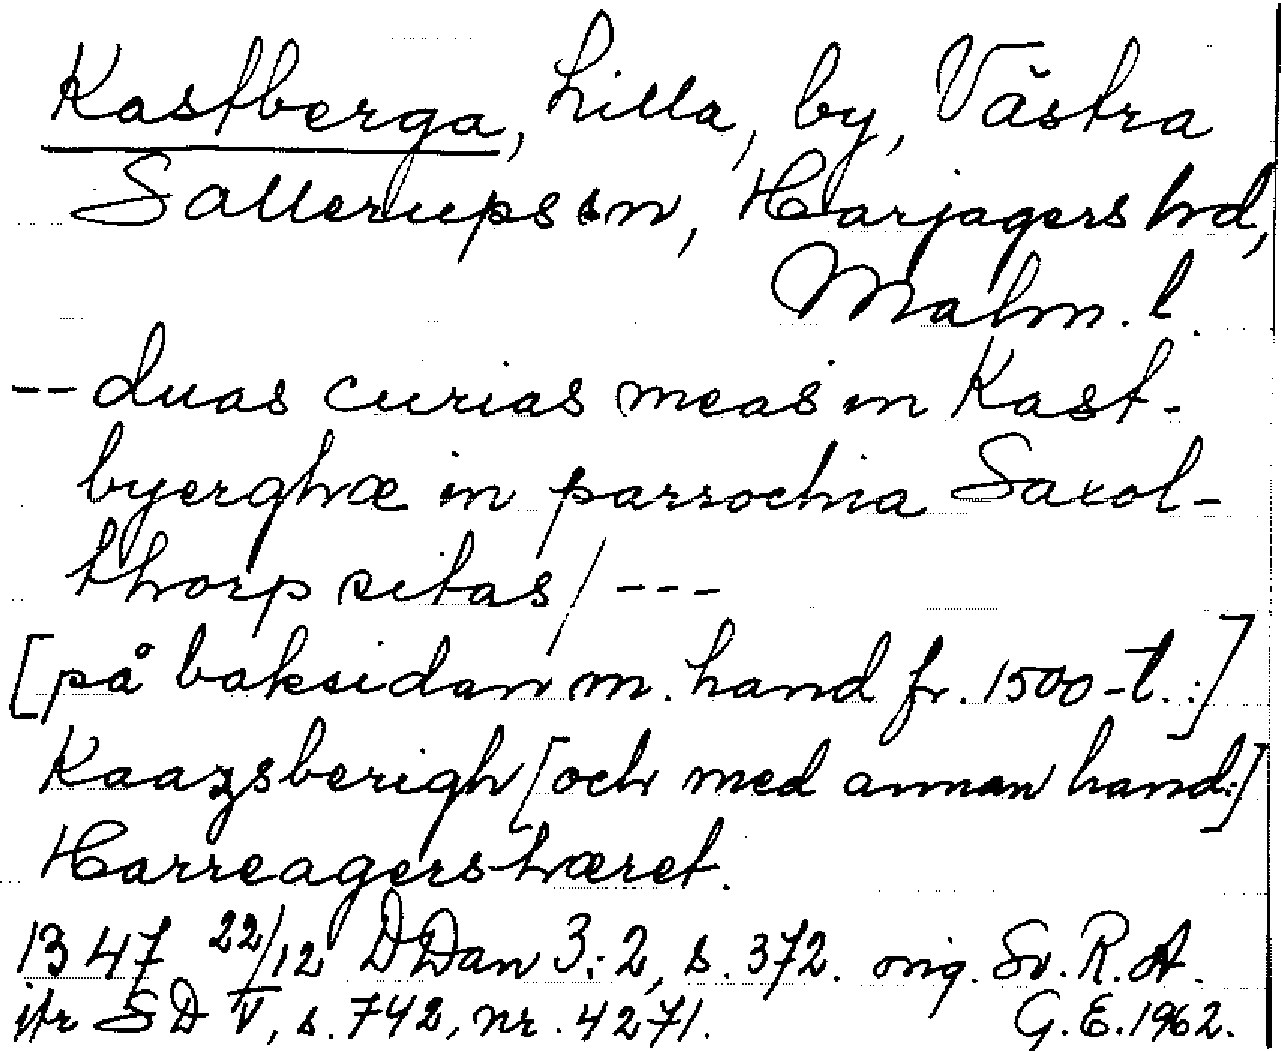 Kastberga, Lilla, by, Västra
Sallerups sn, Harjagers hd,
Malm. l.
-- duas curias meas in Kast-
byerghæ in parrochia Saxol-
thorp sitas / ---
[på baksidan m. hand fr. 1500-t.:]
Kaazsberigh [och med annan hand:]
Harreagers hæret.
1347 22/12 DDan 3:2, s. 372. orig. Sv. R. A.
jfr SD V, s. 742, nr. 4271. G. E. 1962.